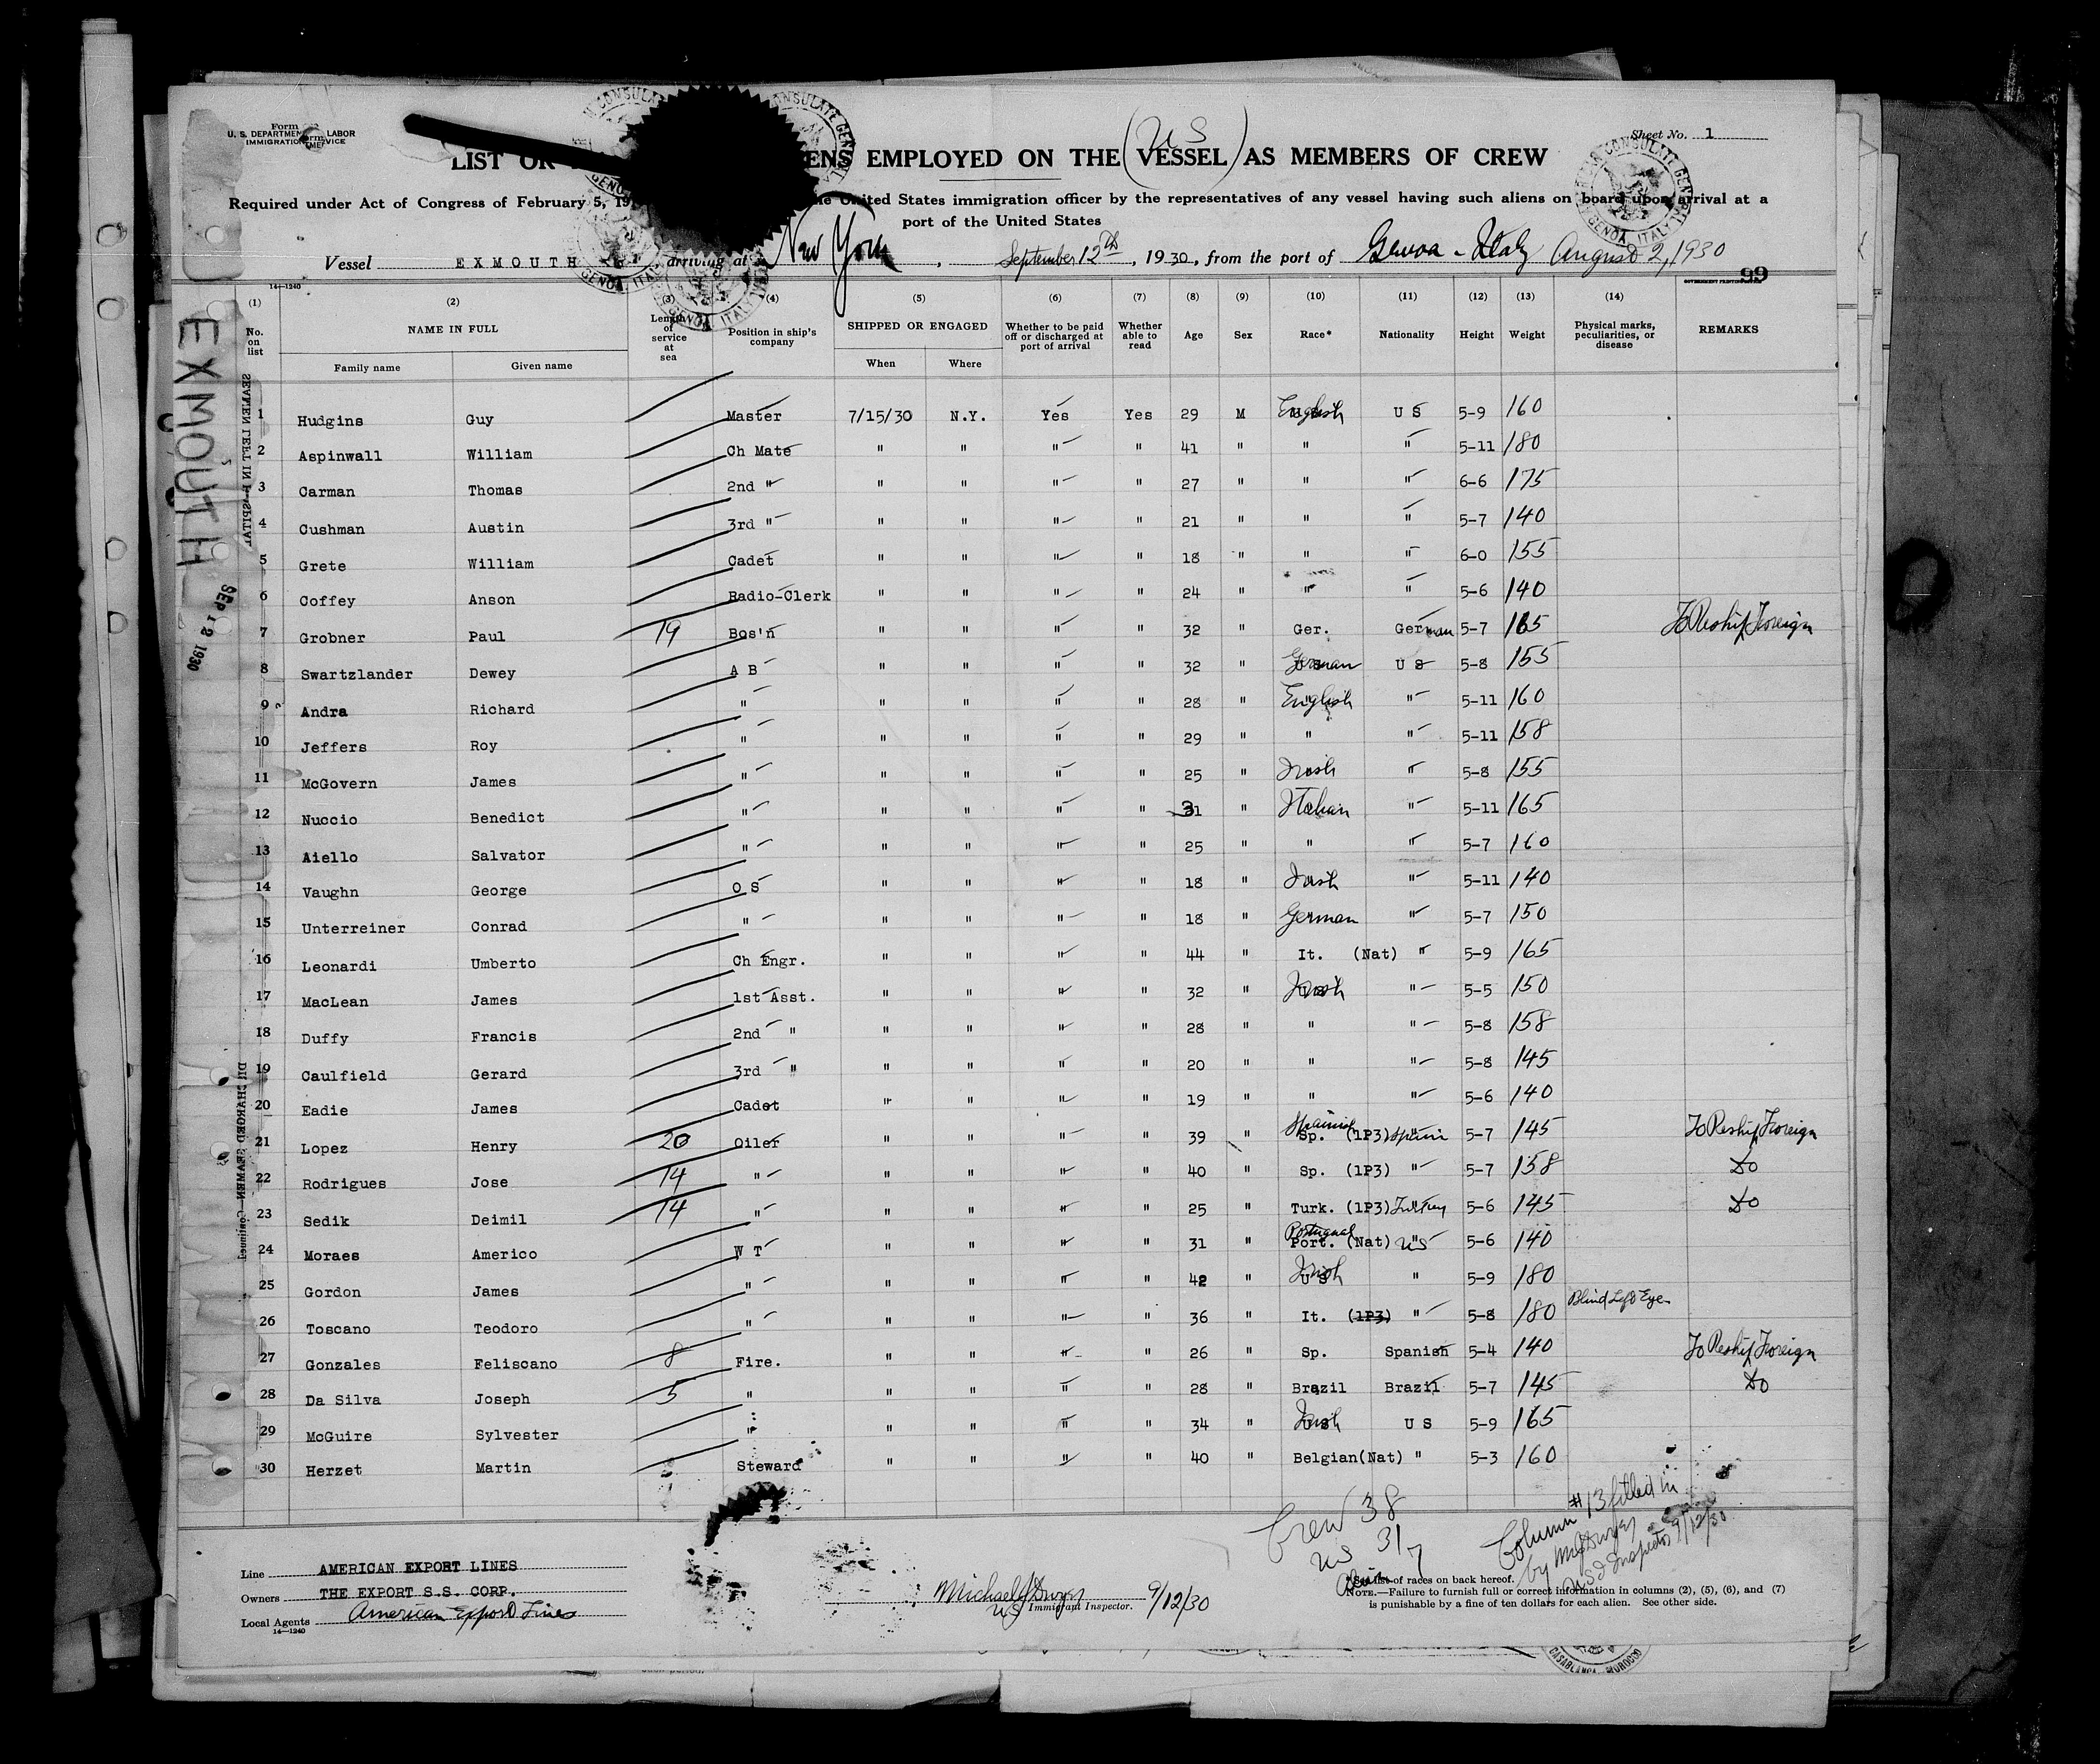 Form
U. S. DEPARTMENT LABOR
IMMIGRATION SERVICE
Sheet No. 1
(US)
LIST OR ENS EMPLOYED ON THE VESSEL AS MEMBERS OF CREW
Required under Act of Congress of February 5, 19 the United States immigration officer by the representatives of any vessel having such aliens on board upon arrival at a
port of the United States
Vessel EXMOUTH arriving at New York, September 12th, 1930, from the port of Genoa - Italy August 2, 1930
99
14—1240
(1) (2) (3) (4) (5) (6) (7) (8) (9) (10) (11) (12) (13) (14)
No. on list NAME IN FULL Length of service at sea Position in ship's company SHIPPED OR ENGAGED Whether to be paid off or discharged at port of arrival Whether able to read Age Sex Race* Nationality Height Weight Physical marks, peculiarities, or disease REMARKS
Family name Given name When Where
EXMOUTH
SEP 12 1930
SEAMEN LEFT IN HOSPITAL
DISCHARGED SEAMEN—Continued
1 Hudgins Guy Master 7/15/30 N.Y. Yes Yes 29 M English U S 5-9 160
2 Aspinwall William Ch Mate " " " " 41 " " " 5-11 180
3 Carman Thomas 2nd " " " " " 27 " " " 6-6 175
4 Cushman Austin 3rd " " " " " 21 " " " 5-7 140
5 Grete William Cadet " " " " 18 " " " 6-0 155
6 Coffey Anson Radio-Clerk " " " " 24 " " " 5-6 140
7 Grobner Paul 19 Bos'n " " " " 32 " Ger. German 5-7 165 To Reship Foreign
8 Swartzlander Dewey A B " " " " 32 " German U S 5-8 155
9 Andra Richard " " " " " 28 " English " 5-11 160
10 Jeffers Roy " " " " " 29 " " " 5-11 158
11 McGovern James " " " " " 25 " Irish " 5-8 155
12 Nuccio Benedict " " " " " 31 " Italian " 5-11 165
13 Aiello Salvator " " " " " 25 " " " 5-7 160
14 Vaughn George O S " " " " 18 " Irish " 5-11 140
15 Unterreiner Conrad " " " " " 18 " German " 5-7 150
16 Leonardi Umberto Ch Engr. " " " " 44 " It. (Nat) " 5-9 165
17 MacLean James 1st Asst. " " " " 32 " Irish " 5-5 150
18 Duffy Francis 2nd " " " " " 28 " " " 5-8 158
19 Caulfield Gerard 3rd " " " " " 20 " " " 5-8 145
20 Eadie James Cadet " " " " 19 " " " 5-6 140
21 Lopez Henry 20 Oiler " " " " 39 " Spanish Sp. (1P3) Spain 5-7 145 To Reship Foreign
22 Rodrigues Jose 14 " " " " " 40 " Sp. (1P3) " 5-7 158 Do
23 Sedik Deimil 14 " " " " " 25 " Turk. (1P3) Turkey 5-6 145 Do
24 Moraes Americo W T " " " " 31 " Portugual Port. (Nat) US 5-6 140
25 Gordon James " " " " " 42 " Irish " 5-9 180
26 Toscano Teodoro " " " " " 36 " It. (1P3) " 5-8 180 Blind Left Eye
27 Gonzales Feliscano 8 Fire. " " " " 26 " Sp. Spanish 5-4 140 To Reship Foreign
28 Da Silva Joseph 5 " " " " " 28 " Brazil Brazil 5-7 145 Do
29 McGuire Sylvester " " " " " 34 " Irish U S 5-9 165
30 Herzet Martin Steward " " " " 40 " Belgian (Nat) " 5-3 160
Crew 38
US 31
Alien 7
Column #13 filled in
by
US Inspector 9/12/30
Line AMERICAN EXPORT LINES
Owners THE EXPORT S.S. CORP.
Local Agents American Export Lines
14—1240
Michael
US Immigrant Inspector. 9/12/30
list of races on back hereof.
NOTE.—Failure to furnish full or correct information in columns (2), (5), (6), and (7)
is punishable by a fine of ten dollars for each alien. See other side.
CASABLANCA, MOROCCO